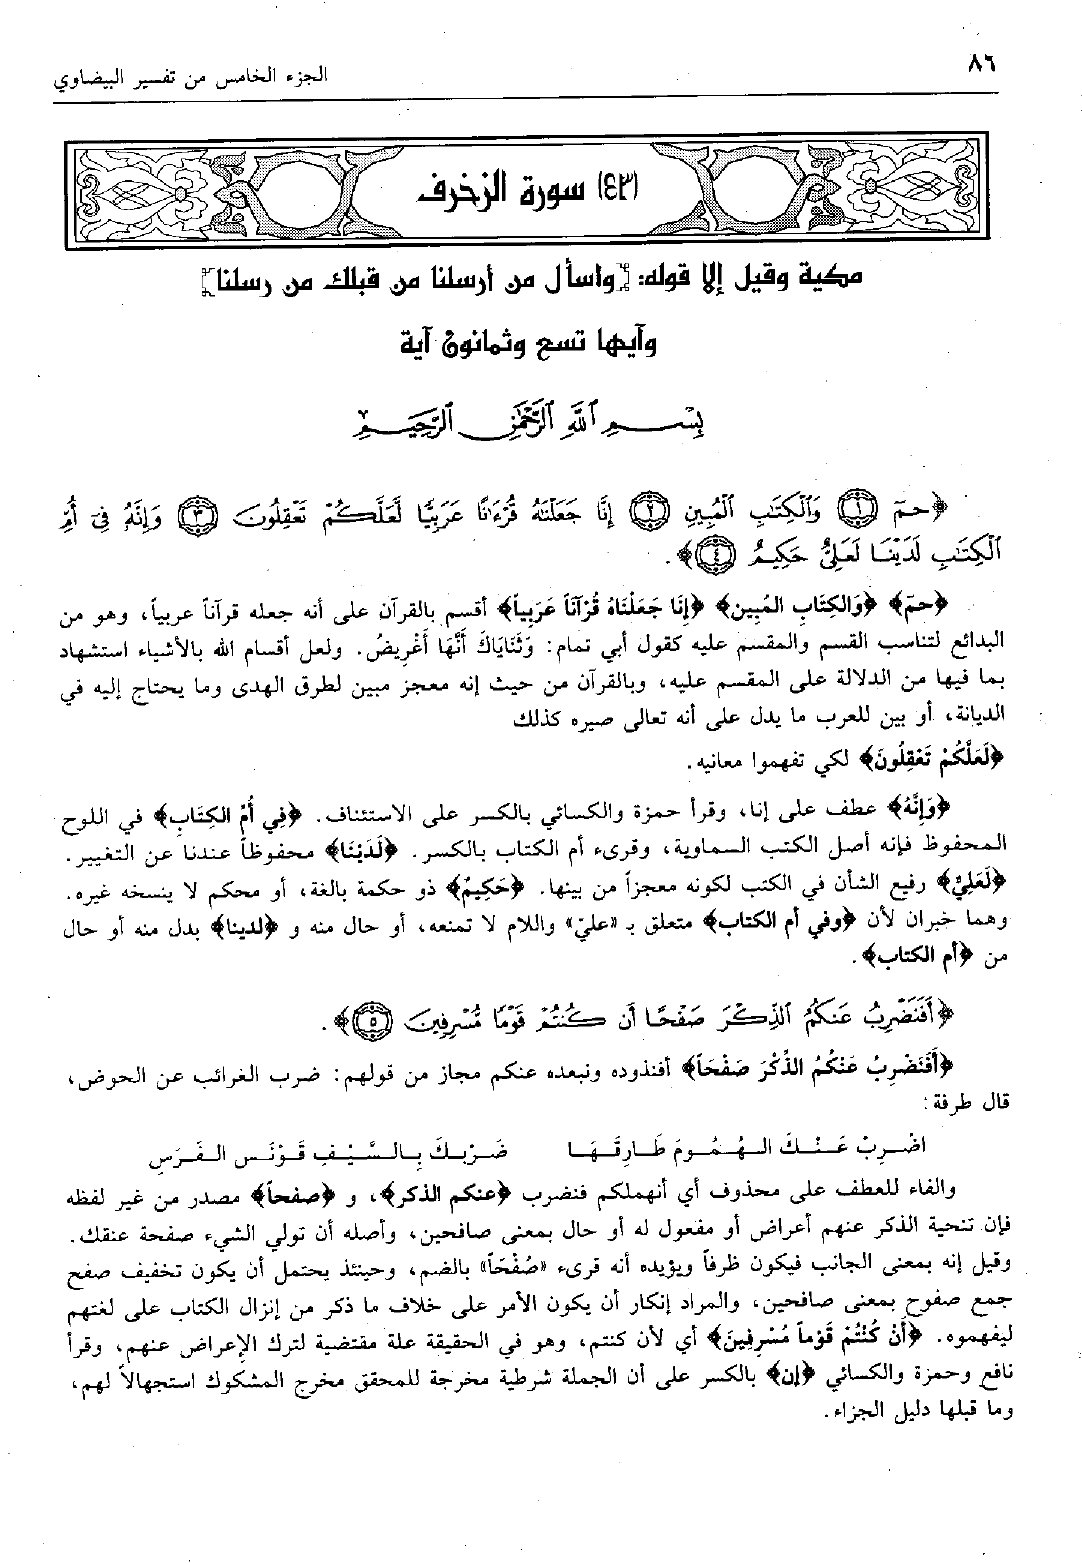 ٨٦
الجزء الخامس من تفسير البيضاوي
(٤٣) سورة الزخرف
مكية وقيل إلا قوله: {واسأل من أرسلنا من قبلك من رسلنا}
وآيها تسع وثمانون آية
بِسْمِ ٱللَّهِ ٱلرَّحْمَٰنِ ٱلرَّحِيمِ
﴿حمٓ ١ وَٱلْكِتَٰبِ ٱلْمُبِينِ ٢ إِنَّا جَعَلْنَٰهُ قُرْءَٰنًا عَرَبِيًّا لَّعَلَّكُمْ تَعْقِلُونَ ٣ وَإِنَّهُۥ فِىٓ أُمِّ
ٱلْكِتَٰبِ لَدَيْنَا لَعَلِىٌّ حَكِيمٌ ٤﴾.
﴿حمٓ﴾ ﴿وَالكِتَابِ المُبِينِ﴾ ﴿إِنَا جَعَلْنَاهُ قُرْآنَاً عَرَبِياً﴾ أقسم بالقرآن على أنه جعله قرآناً عربياً، وهو من
البدائع لتناسب القسم والمقسم عليه كقول أبي تمام: وَثَنَايَاكَ أَنَّهَا أَغْرِيضُ. ولعل أقسام الله بالأشياء استشهاد
بما فيها من الدلالة على المقسم عليه، وبالقرآن من حيث إنه معجز مبين لطرق الهدى وما يحتاج إليه في
الديانة، أو بين للعرب ما يدل على أنه تعالى صيره كذلك
﴿لَعَلَّكُمْ تَعْقِلُونَ﴾ لكي تفهموا معانيه.
﴿وَإِنَّهُ﴾ عطف على إنا، وقرأ حمزة والكسائي بالكسر على الاستئناف. ﴿فِي أُمِّ الكِتَابِ﴾ في اللوح
المحفوظ فإنه أصل الكتب السماوية، وقرىء أم الكتاب بالكسر. ﴿لَدَيْنَا﴾ محفوظاً عندنا عن التغيير.
﴿لَعَلِيٌ﴾ رفيع الشأن في الكتب لكونه معجزاً من بينها. ﴿حَكِيمٌ﴾ ذو حكمة بالغة، أو محكم لا ينسخه غيره.
وهما خبران لأن ﴿وفي أم الكتاب﴾ متعلق بـ «عليّ» واللام لا تمنعه، أو حال منه و ﴿لدينا﴾ بدل منه أو حال
من ﴿أم الكتاب﴾.
﴿أَفَنَضْرِبُ عَنكُمُ ٱلذِّكْرَ صَفْحًا أَن كُنتُمْ قَوْمًا مُّسْرِفِينَ ٥﴾.
﴿أَفَنَضْرِبُ عَنْكُمُ الذِّكْرَ صَفْحَاً﴾ أفنذوده ونبعده عنكم مجاز من قولهم: ضرب الغرائب عن الحوض،
قال طرفة:
اضْرِبْ عَنْكَ الهُمُومَ طَارِقَهَا ضَرْبَكَ بِالسَّيْفِ قَوْنَسَ الفَرَسِ
والفاء للعطف على محذوف أي أنهملكم فنضرب ﴿عنكم الذكر﴾، و ﴿صفحاً﴾ مصدر من غير لفظه
فإن تنحية الذكر عنهم أعراض أو مفعول له أو حال بمعنى صافحين، وأصله أن تولي الشيء صفحة عنقك.
وقيل إنه بمعنى الجانب فيكون ظرفاً ويؤيده أنه قرىء «صُفْحَاً» بالضم، وحينئذ يحتمل أن يكون تخفيف صفح
جمع صفوح بمعنى صافحين، والمراد إنكار أن يكون الأمر على خلاف ما ذكر من إنزال الكتاب على لغتهم
ليفهموه. ﴿أَنْ كُنْتُمْ قَوْمَاً مُسْرِفِينَ﴾ أي لأن كنتم، وهو في الحقيقة علة مقتضية لترك الإعراض عنهم، وقرأ
نافع وحمزة والكسائي ﴿إن﴾ بالكسر على أن الجملة شرطية مخرجة للمحقق مخرج المشكوك استجهالاً لهم،
وما قبلها دليل الجزاء.